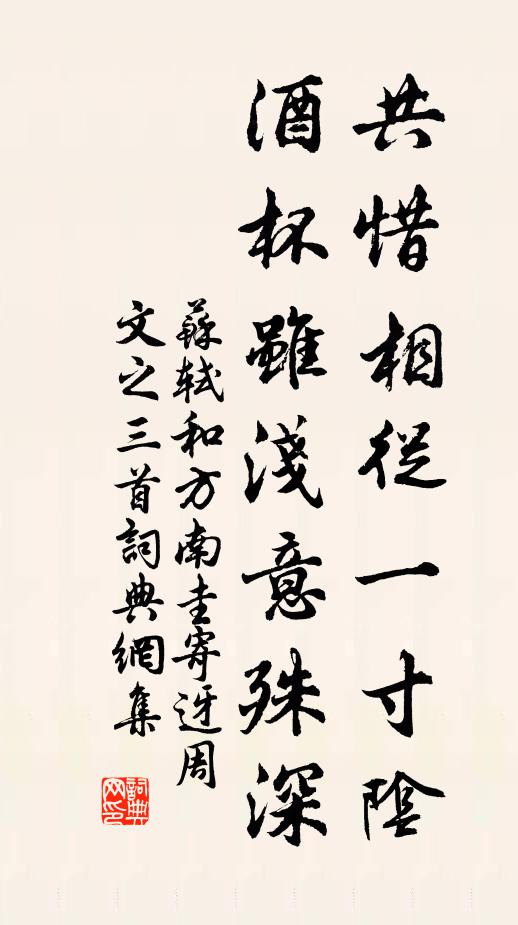 共惜相從一寸陰
酒杯雖淺意殊深
蘇軾和方南圭寄迓周
文之三首詞典網集
詞典网印